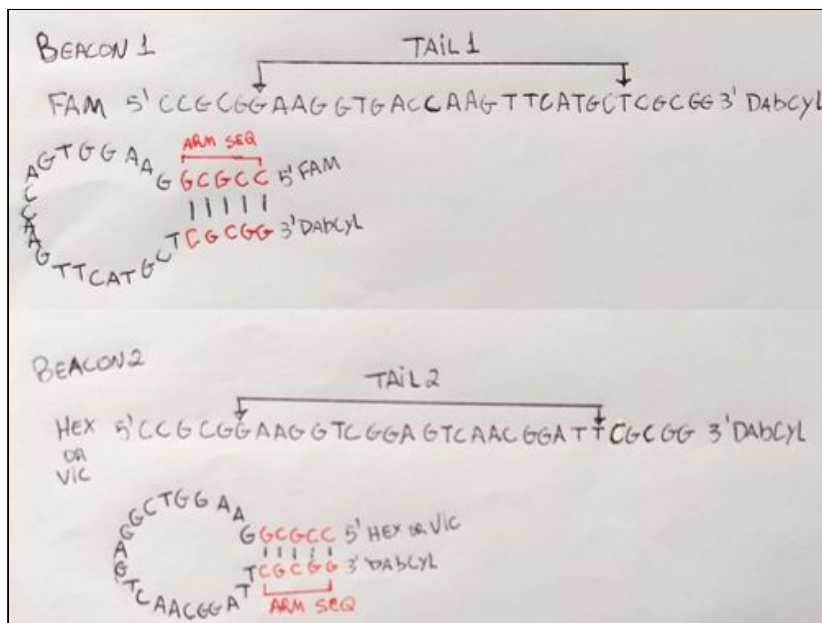 BEACON 1
TAIL 1
FAM 5' CCGCGGAAGGTGACCAAGTTCATGCTCGCGG 3' DAbCyL
ARM SEQ
AGTGGAAG GCGCC 5' FAM
CCAAG
TTCATGCT CGCGG 3' DAbCyL
BEACON 2
TAIL 2
HEX 5' CCGCGGAAGGTCGGAGTCAACGGATTCGCGG 3' DAbCyL
OR
VIC
GGCTGGAAG GCGCC 5' HEX OR VIC
AG
TCAACGGATT CGCGG 3' DAbCyL
ARM SEQ